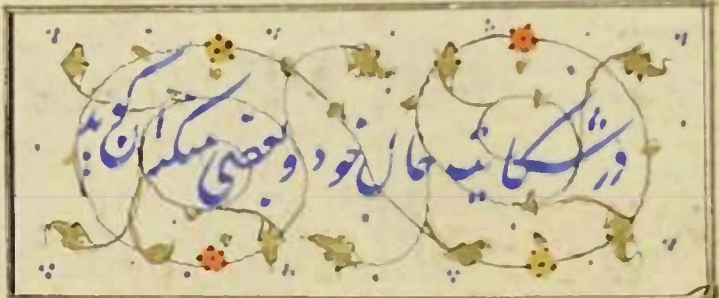 در شکایت حال خود و بعضی منکران گوید